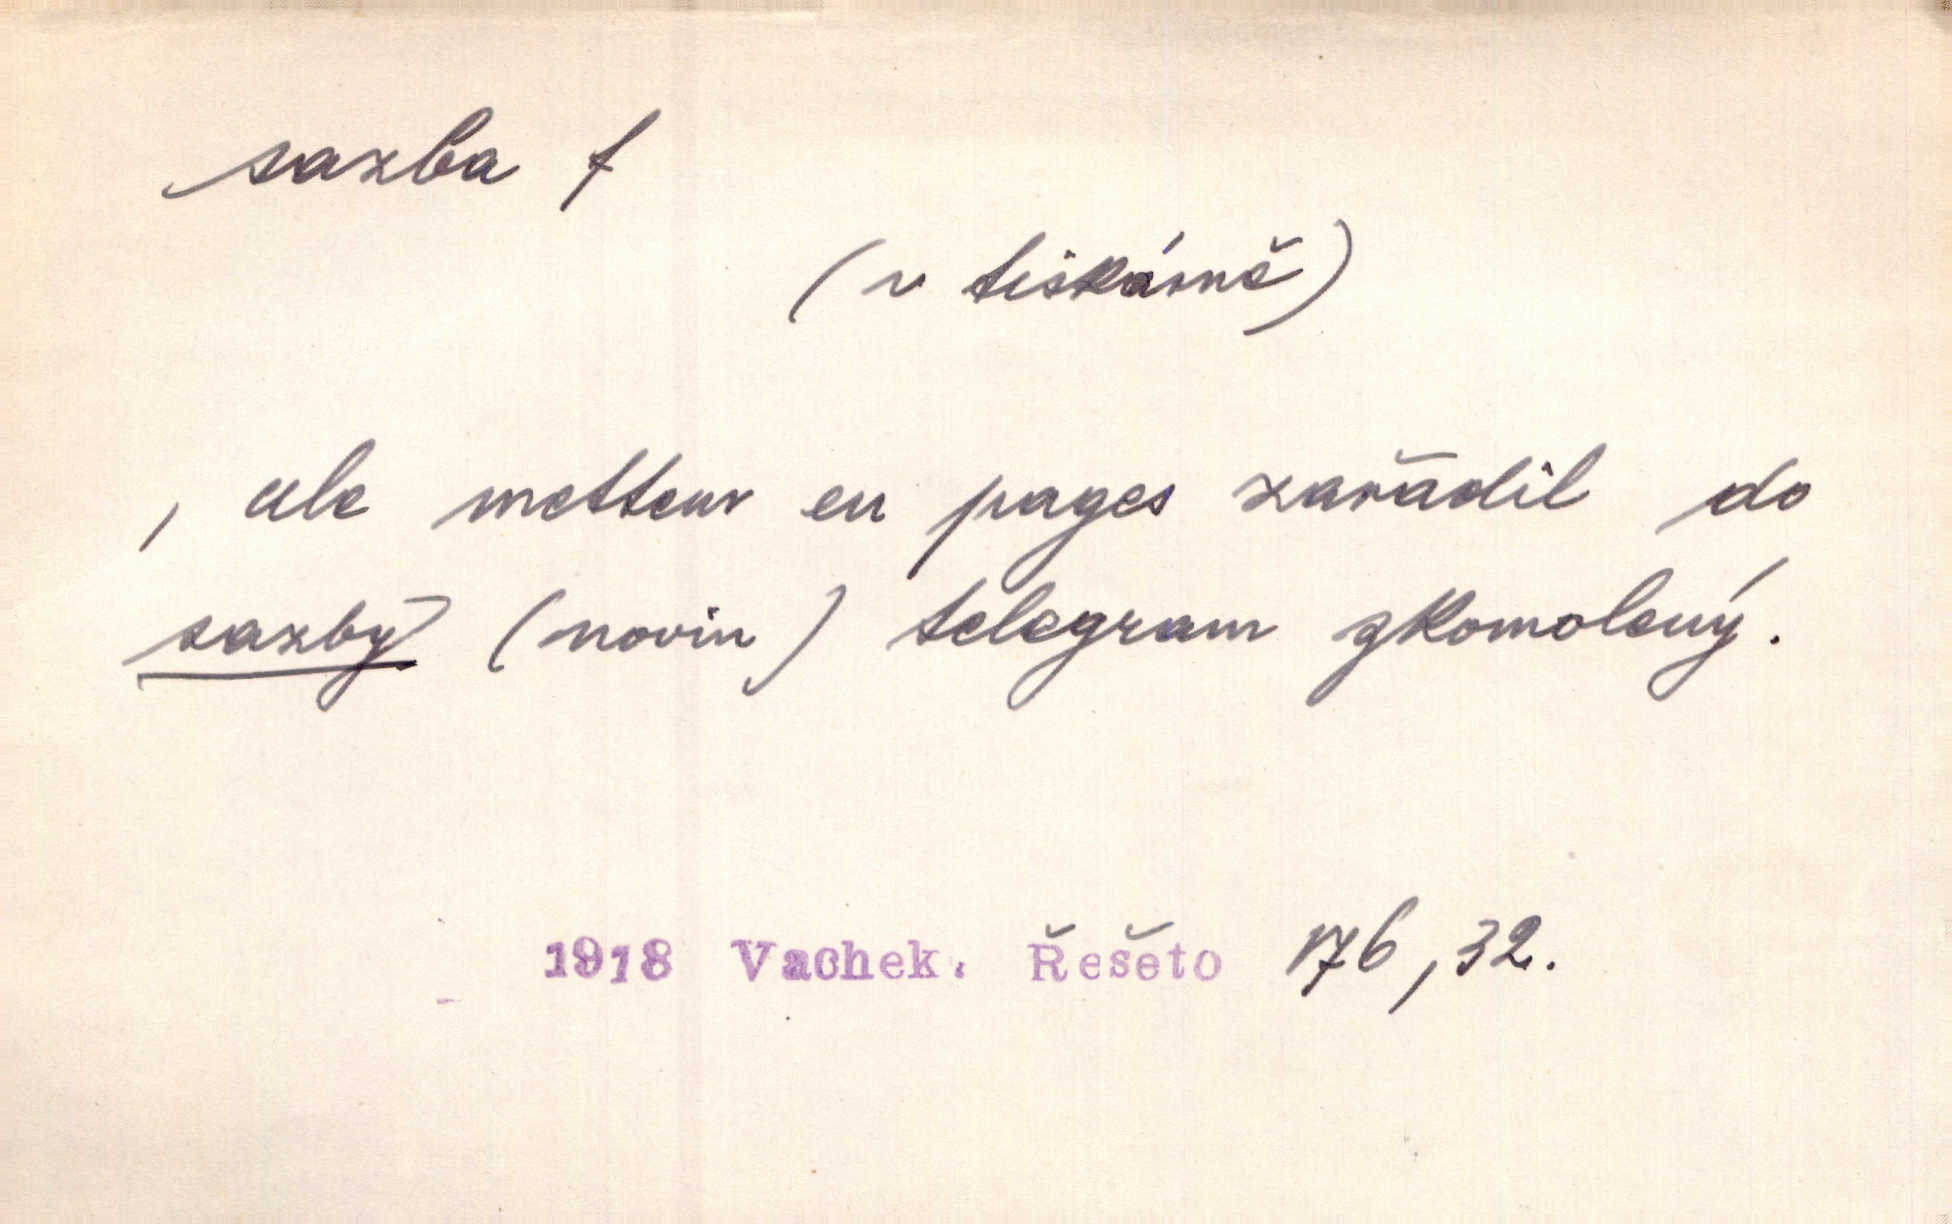 sazba f
(v tiskárně)
, ale metteur en pages zařádil do
sazby (novin) telegram zkomolený.
1918 Vachek. Řešeto 176, 32.